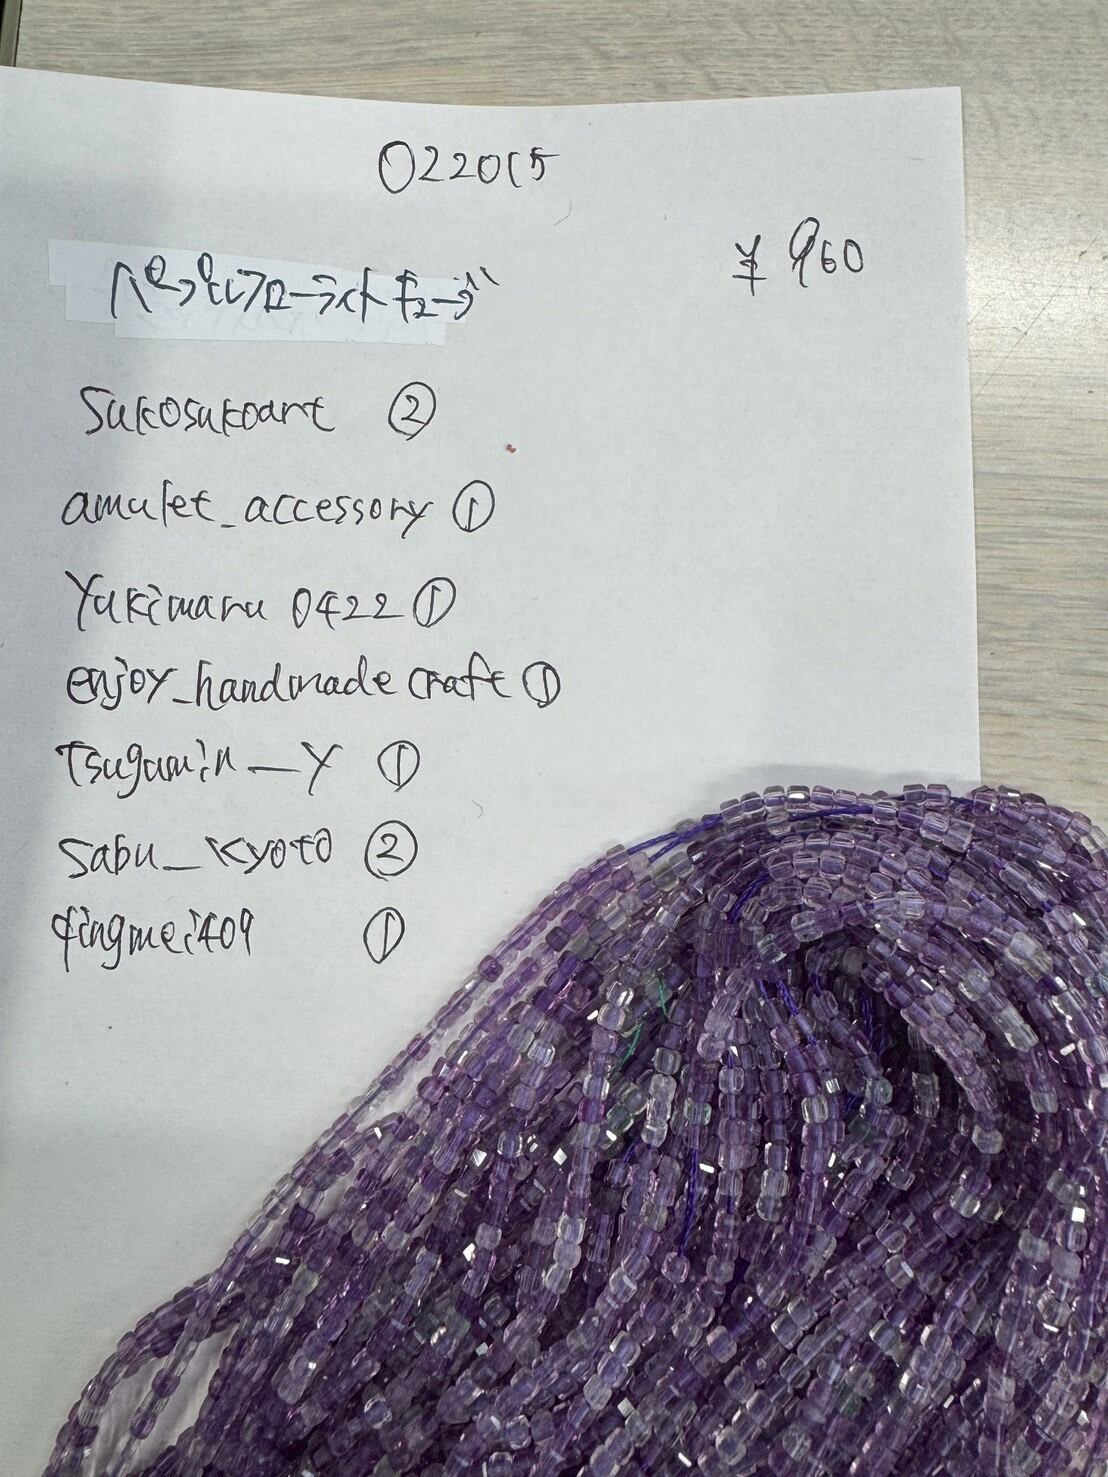 022015
¥960
sukosukoart ②
amulet_accessory ①
Yukimaru 0422 ①
enjoy_handmade craft ①
Tsugumin_Y ①
sabu_kyoto ②
qingmei409 ①